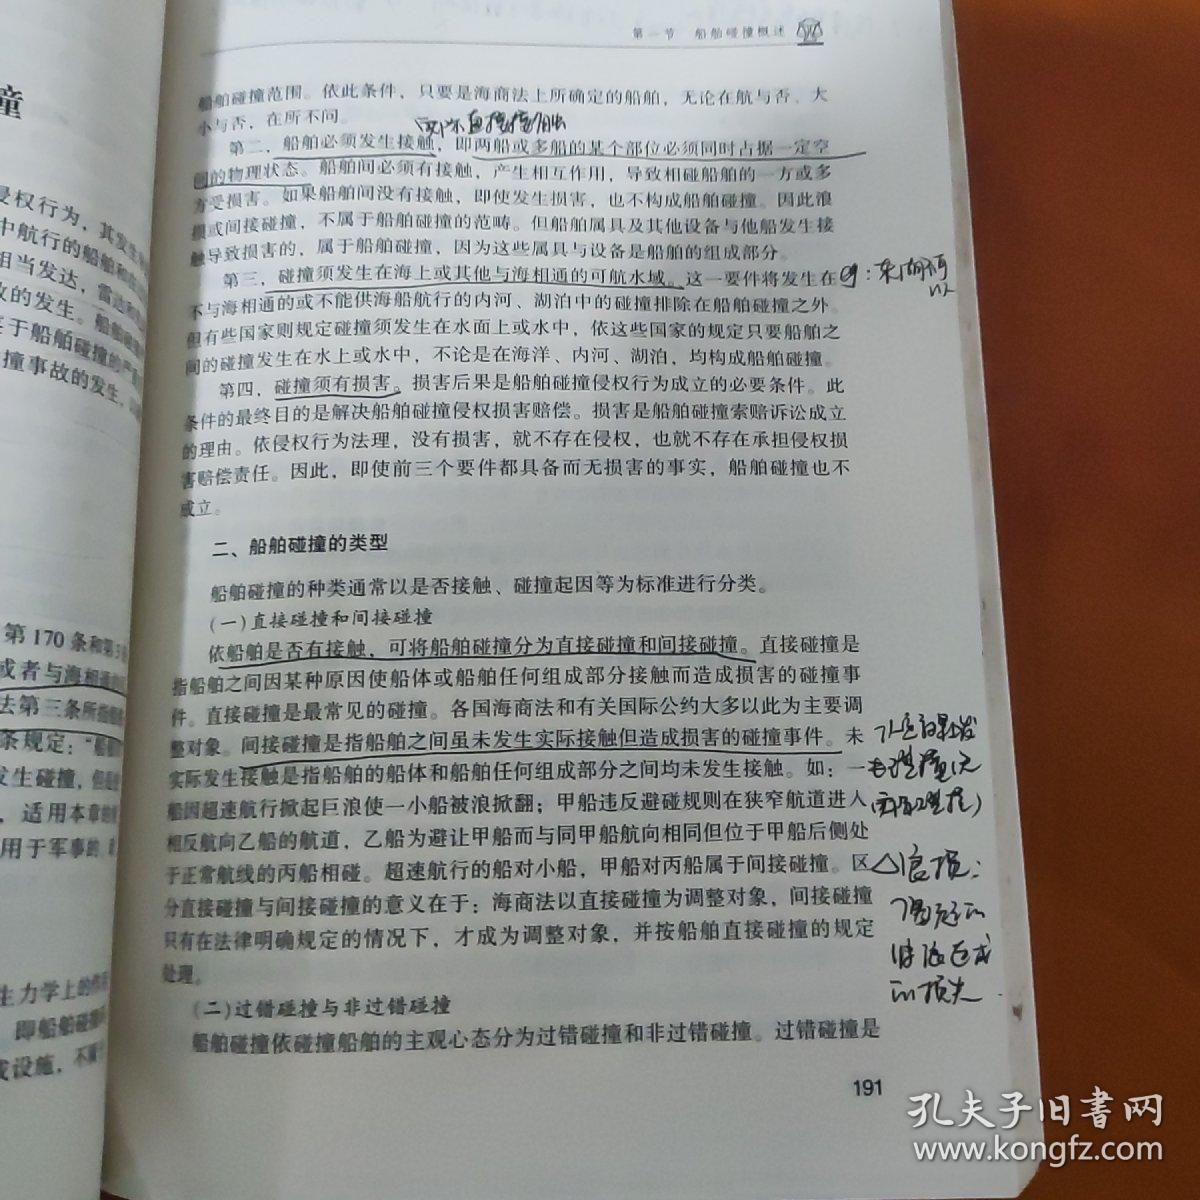 第一节 船舶碰撞概述
船舶碰撞范围。依此条件，只要是海商法上所确定的船舶，无论在航与否、大
小与否，在所不同。
第二，船舶必须发生接触，即两船或多船的某个部位必须同时占据一定空
间的物理状态。船舶间必须有接触，产生相互作用，导致相碰船舶的一方或多
方受损害。如果船舶间没有接触，即使发生损害，也不构成船舶碰撞。因此浪
损或间接碰撞，不属于船舶碰撞的范畴。但船舶属具及其他设备与他船发生接
触导致损害的，属于船舶碰撞，因为这些属具与设备是船舶的组成部分。
第三，碰撞须发生在海上或其他与海相通的可航水域。这一要件将发生在
不与海相通的或不能供海船航行的内河、湖泊中的碰撞排除在船舶碰撞之外。
但有些国家则规定碰撞须发生在水面上或水中，依这些国家的规定只要船舶之
间的碰撞发生在水上或水中，不论是在海洋、内河、湖泊，均构成船舶碰撞。
第四，碰撞须有损害。损害后果是船舶碰撞侵权行为成立的必要条件。此
条件的最终目的是解决船舶碰撞侵权损害赔偿。损害是船舶碰撞索赔诉讼成立
的理由。依侵权行为法理，没有损害，就不存在侵权，也就不存在承担侵权损
害赔偿责任。因此，即使前三个要件都具备而无损害的事实，船舶碰撞也不
成立。
二、船舶碰撞的类型
船舶碰撞的种类通常以是否接触、碰撞起因等为标准进行分类。
(一)直接碰撞和间接碰撞
依船舶是否有接触，可将船舶碰撞分为直接碰撞和间接碰撞。直接碰撞是
指船舶之间因某种原因使船体或船舶任何组成部分接触而造成损害的碰撞事
件。直接碰撞是最常见的碰撞。各国海商法和有关国际公约大多以此为主要调
整对象。间接碰撞是指船舶之间虽未发生实际接触但造成损害的碰撞事件。未
实际发生接触是指船舶的船体和船舶任何组成部分之间均未发生接触。如：一
船因超速航行掀起巨浪使一小船被浪掀翻；甲船违反避碰规则在狭窄航道进入
相反航向乙船的航道，乙船为避让甲船而与同甲船航向相同但位于甲船后侧处
于正常航线的丙船相碰。超速航行的船对小船，甲船对丙船属于间接碰撞。区
分直接碰撞与间接碰撞的意义在于：海商法以直接碰撞为调整对象，间接碰撞
只有在法律明确规定的情况下，才成为调整对象，并按船舶直接碰撞的规定
处理。
(二)过错碰撞与非过错碰撞
船舶碰撞依碰撞船舶的主观心态分为过错碰撞和非过错碰撞。过错碰撞是
191
撞
侵权行为，其发生
中航行的船舶和
相当发达，雷达和
故的发生。船舶
至于船舶碰撞的严
撞事故的发生，
第170条和第
或者与海相通的
法第三条所指
条规定：“船舶
发生碰撞，但是
，适用本章的
用于军事的
生力学上的作
即船舶碰撞
或设施，不
孔夫子旧书网
www.kongfz.com